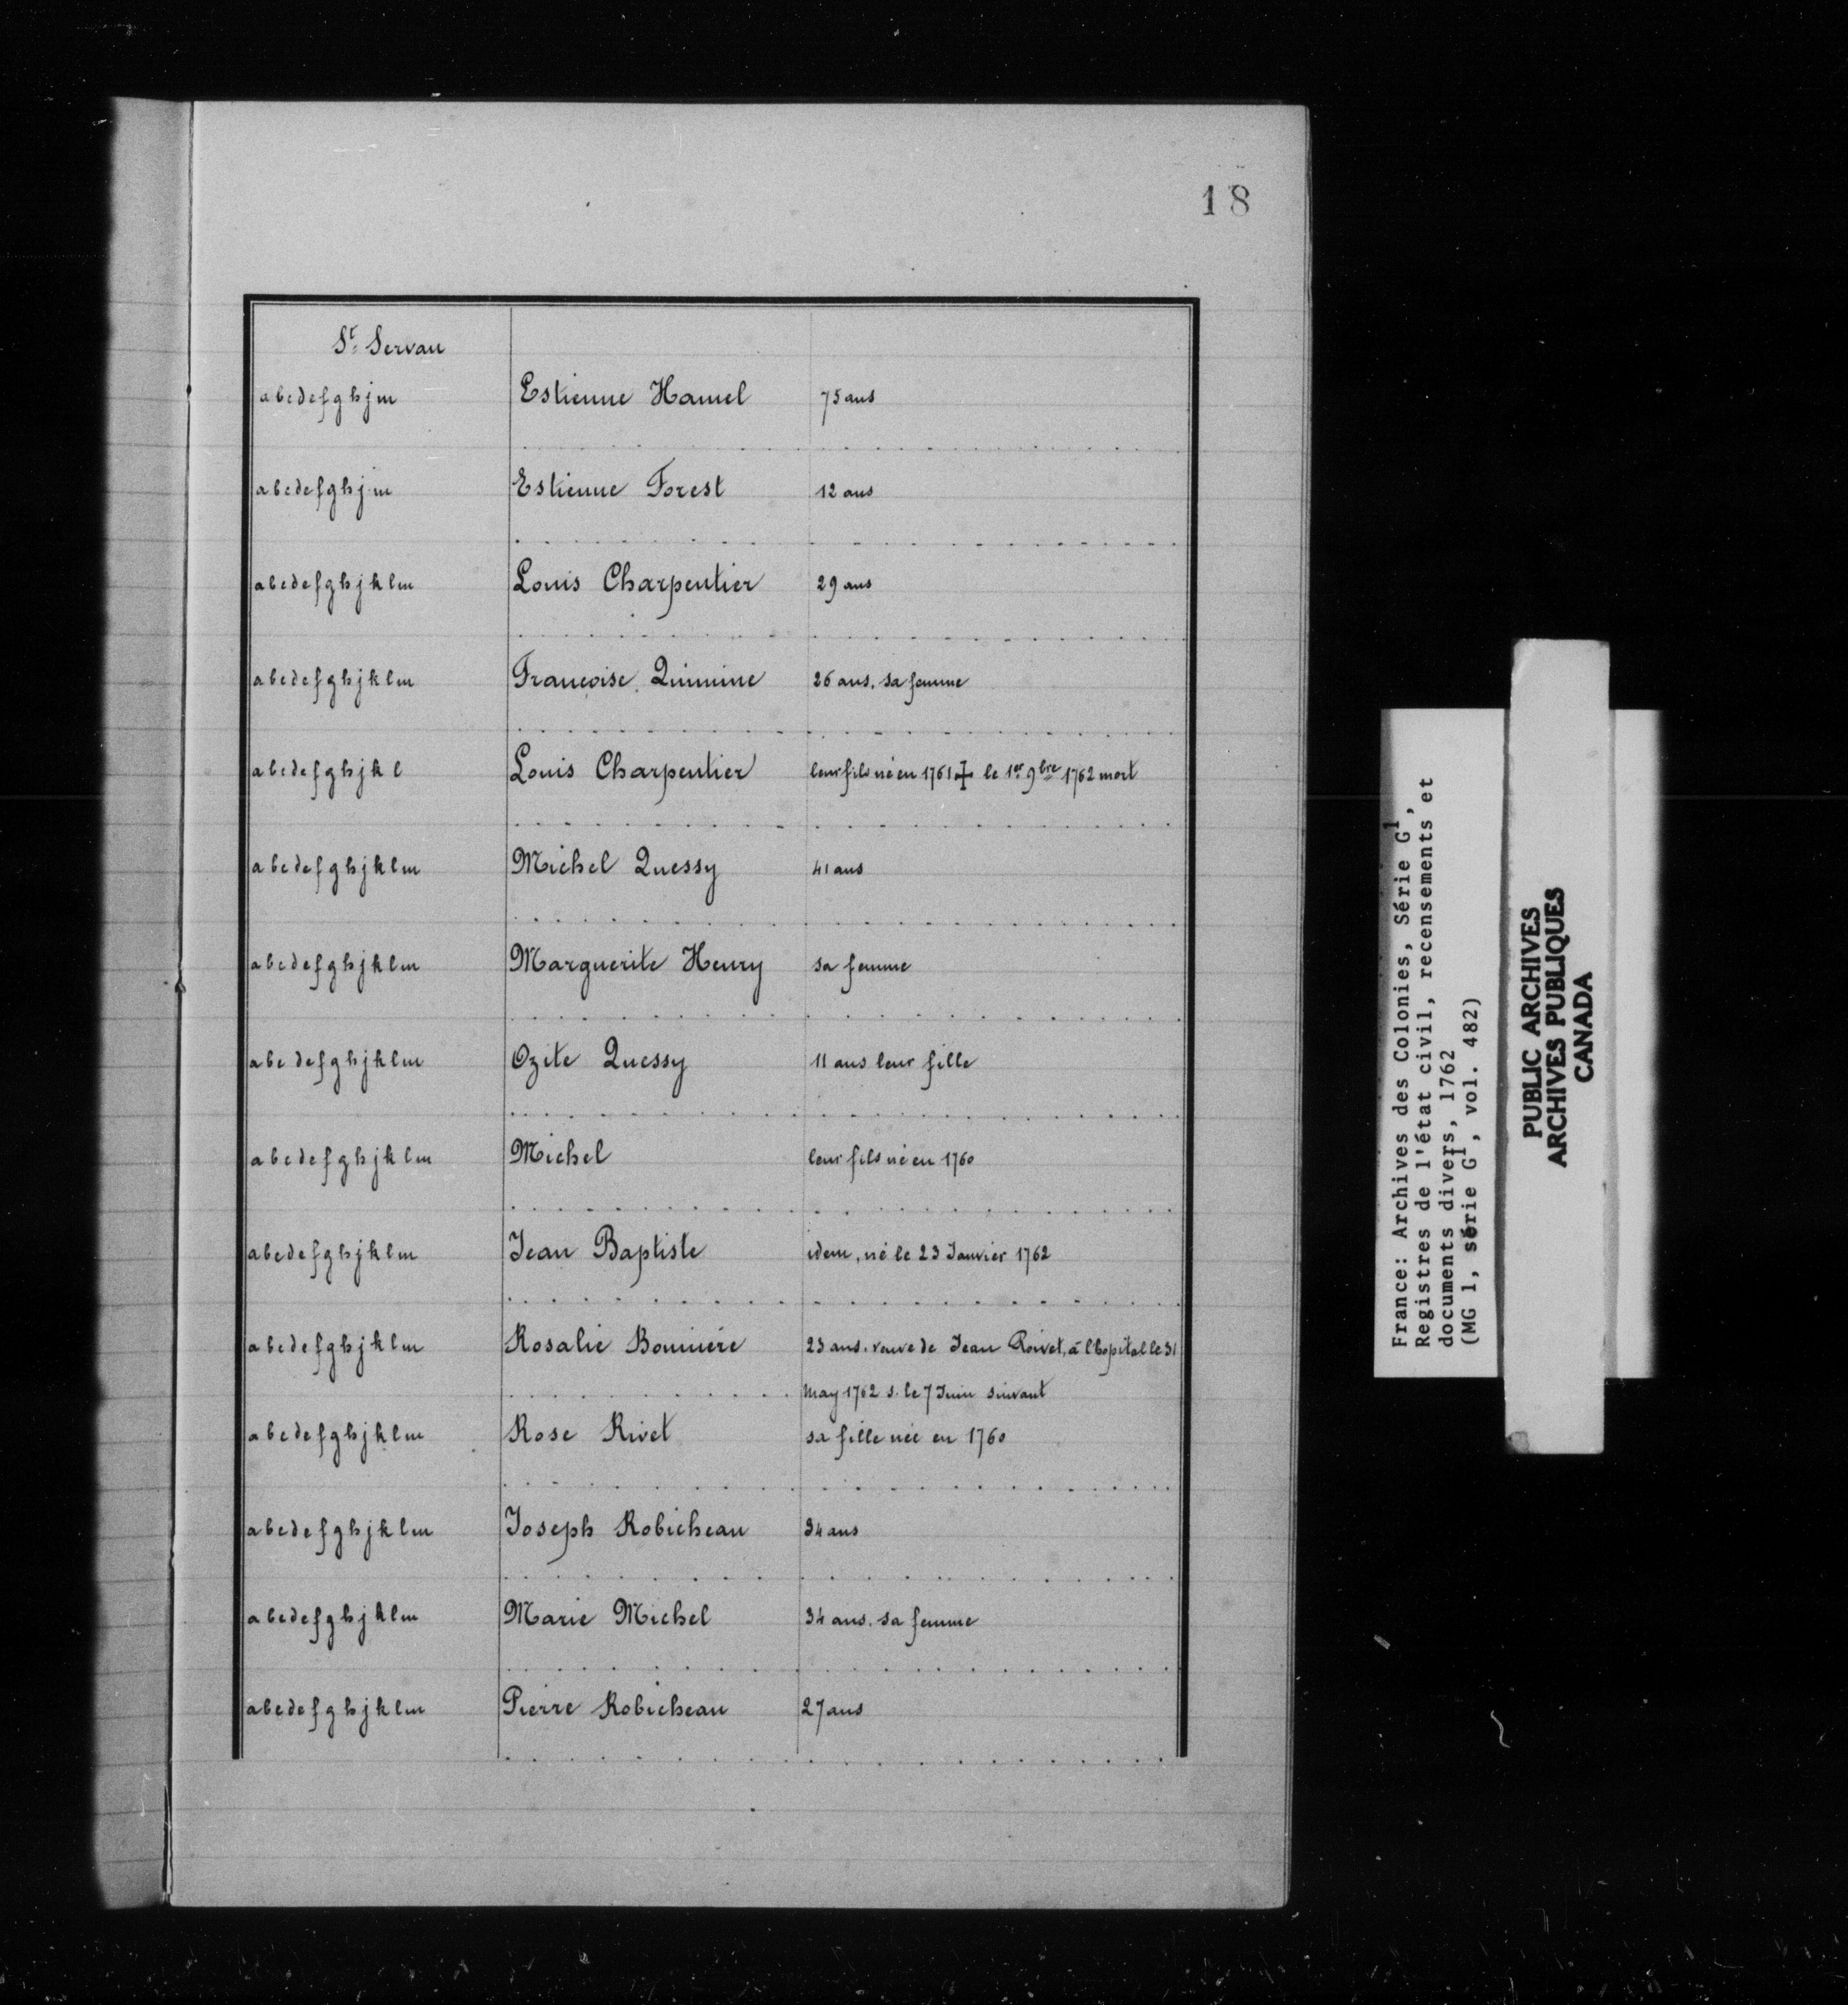 18
St. Servan
abcdefghjm Estienne Hamel 75 ans
abcdefghjm Estienne Forest 12 ans
abcdefghjklm Louis Charpentier 29 ans
abcdefghjklm Françoise Quimine 26 ans. sa femme
abcdefghjkl Louis Charpentier leur fils né en 1761 ‡ le 1er 9bre 1762 mort
abcdefghjklm Michel Quessy 41 ans
abcdefghjklm Marguerite Henry sa femme
abcdefghjklm Ozite Quessy 11 ans leur fille
abcdefghjklm Michel leur fils né en 1760
abcdefghjklm Jean Baptiste idem, né le 23 Janvier 1762
abcdefghjklm Rosalie 23 ans. veuve de Jean Rivet, à l'hopital le 31
May 1762 s. le 7 Juin suivant
abcdefghjklm Rose Rivet sa fille née en 1760
abcdefghjklm Joseph Robicheau 34 ans
abcdefghjklm Marie Michel 34 ans. sa femme
abcdefghjklm Pierre Robicheau 27 ans
France: Archives des Colonies, Série G1,
Registres de l'état civil, recensements et
documents divers, 1762
(MG 1, série G1, vol. 482)
PUBLIC ARCHIVES
ARCHIVES PUBLIQUES
CANADA